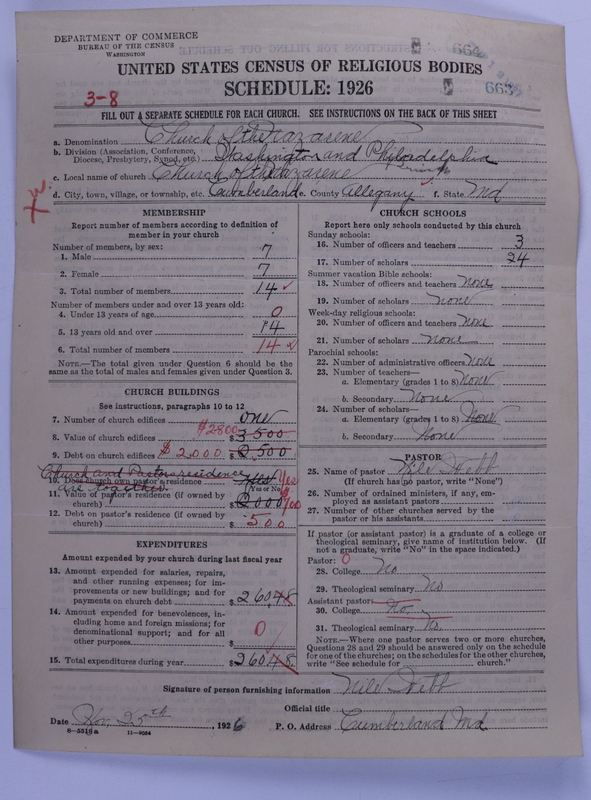 DEPARTMENT OF COMMERCE
BUREAU OF THE CENSUS
WASHINGTON
664
663
UNITED STATES CENSUS OF RELIGIOUS BODIES
SCHEDULE: 1926
3-8
FILL OUT A SEPARATE SCHEDULE FOR EACH CHURCH. SEE INSTRUCTIONS ON THE BACK OF THIS SHEET
a. Denomination Church of the Nazarene
b. Division (Association, Conference, Diocese, Presbytery, Synod, etc.) Washington and Philadelphia
c. Local name of church Church of the Nazarene
d. City, town, village, or township, etc. Cumberland e. County Allegany f. State Md
MEMBERSHIP
Report number of members according to definition of member in your church
Number of members, by sex:
1. Male 7
2. Female 7
3. Total number of members 14
Number of members under and over 13 years old:
4. Under 13 years of age 0
5. 13 years old and over 14
6. Total number of members 14
NOTE.—The total given under Question 6 should be the same as the total of males and females given under Question 3.
CHURCH BUILDINGS
See instructions, paragraphs 10 to 12
7. Number of church edifices one
$2800
8. Value of church edifices $3500
9. Debt on church edifices $2000 $2,500
Church and Pastors residence are together.
10. Does church own pastor's residence Yes Yes
(Yes or No)
11. Value of pastor's residence (if owned by church) $2000 $700
12. Debt on pastor's residence (if owned by church) $500
EXPENDITURES
Amount expended by your church during last fiscal year
13. Amount expended for salaries, repairs, and other running expenses; for improvements or new buildings; and for payments on church debt $26048
14. Amount expended for benevolences, including home and foreign missions; for denominational support; and for all other purposes $ 0
15. Total expenditures during year $26048
CHURCH SCHOOLS
Report here only schools conducted by this church
Sunday schools:
16. Number of officers and teachers 3
17. Number of scholars 24
Summer vacation Bible schools:
18. Number of officers and teachers None
19. Number of scholars None
Week-day religious schools:
20. Number of officers and teachers None
21. Number of scholars None
Parochial schools:
22. Number of administrative officers None
23. Number of teachers—
a. Elementary (grades 1 to 8) None
b. Secondary None
24. Number of scholars—
a. Elementary (grades 1 to 8) None
b. Secondary None
PASTOR
25. Name of pastor
(If church has no pastor, write "None")
26. Number of ordained ministers, if any, employed as assistant pastors
27. Number of other churches served by the pastor or his assistants
If pastor (or assistant pastor) is a graduate of a college or theological seminary, give name of institution below. (If not a graduate, write "No" in the space indicated.)
Pastor: 0
28. College No
29. Theological seminary No
Assistant pastor:
30. College No.
31. Theological seminary No.
NOTE.—Where one pastor serves two or more churches, Questions 28 and 29 should be answered only on the schedule for one of the churches; on the schedules for the other churches, write "See schedule for church."
Signature of person furnishing information
Official title
Date Nov. 25th, 1926 P. O. Address Cumberland Md
8-5518a 11-9054